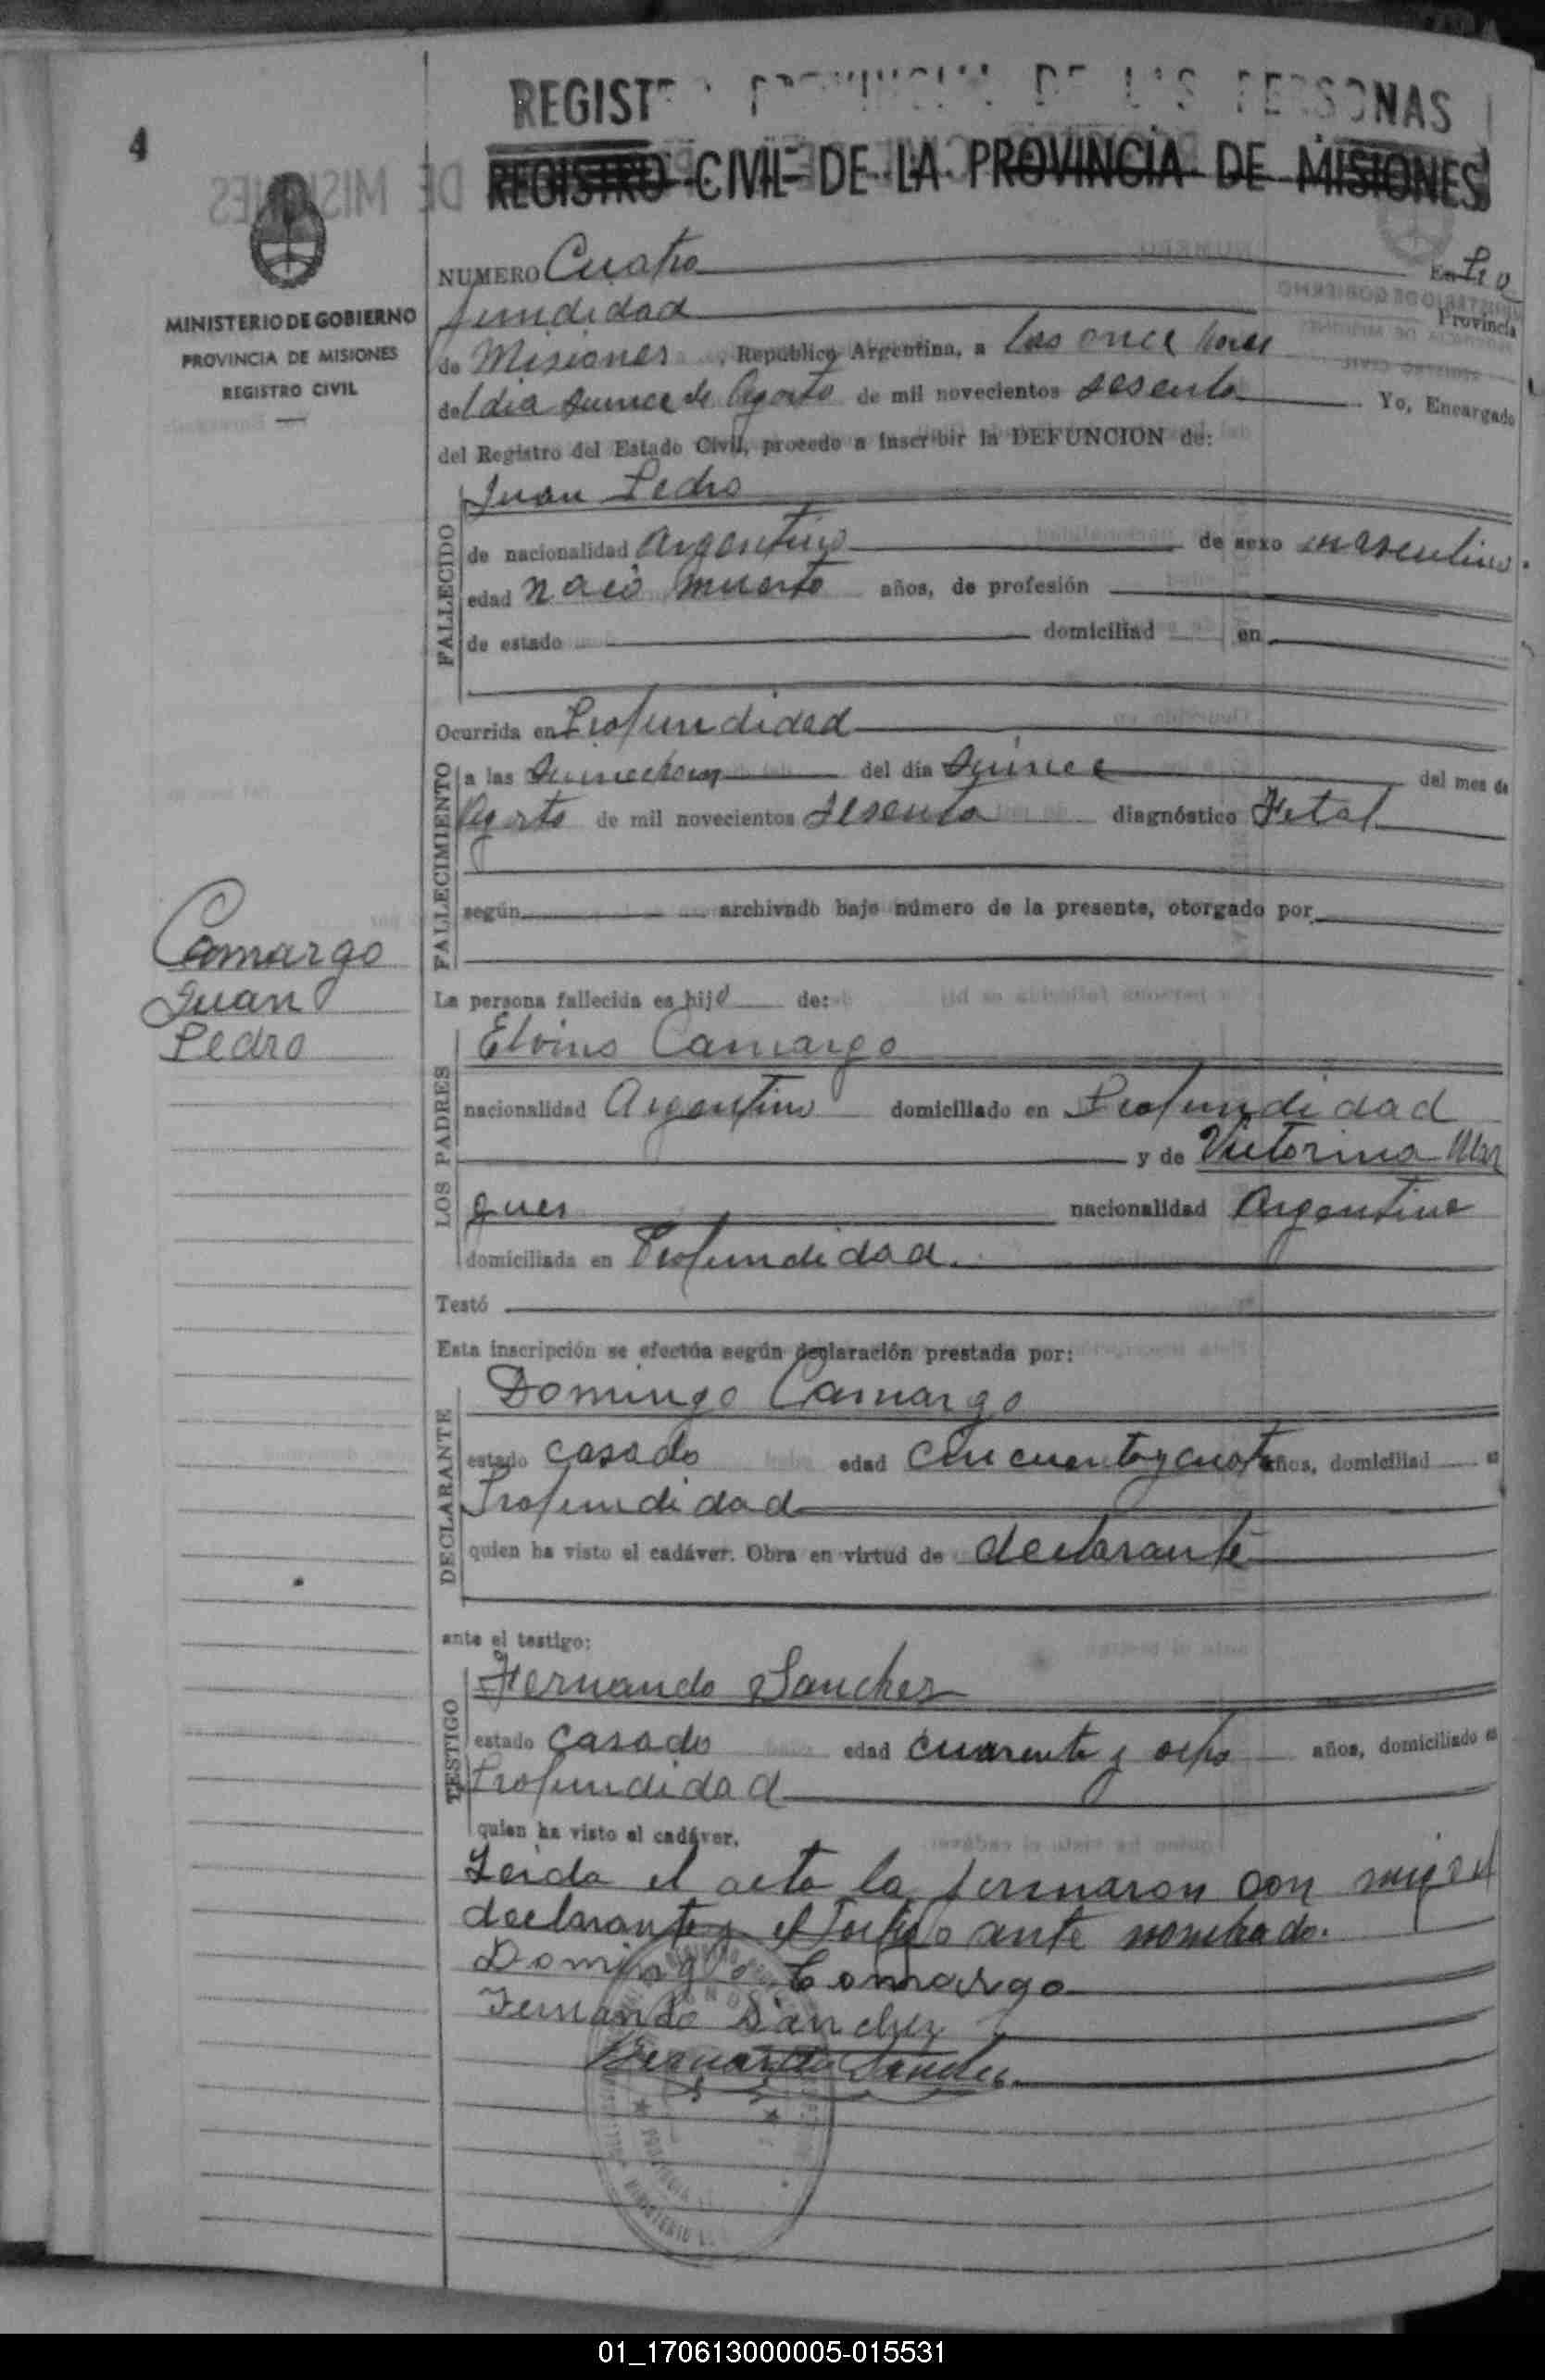 REGISTRO PROVINCIAL DE LAS PERSONAS
REGISTRO CIVIL DE LA PROVINCIA DE MISIONES
4
MINISTERIO DE GOBIERNO
PROVINCIA DE MISIONES
REGISTRO CIVIL
NUMERO Cuatro En Pro
fundidad Provincia
de Misiones, República Argentina, a las once horas
del dia Quince de Agosto de mil novecientos sesenta Yo, Encargado
del Registro del Estado Civil, procedo a inscribir la DEFUNCION de:
FALLECIDO
Juan Pedro
de nacionalidad Argentino de sexo masculino.
edad nació muerto años, de profesión
de estado domiciliad en
Ocurrida en Profundidad
FALLECIMIENTO
a las del día Quince del mes de
Agosto de mil novecientos sesenta diagnóstico Fetal
según archivado bajo número de la presente, otorgado por
Camargo
Juan
Pedro
La persona fallecida es hijo de:
LOS PADRES
Elvino Camargo
nacionalidad Argentino domiciliado en Profundidad
y de Victorina Mar
ques nacionalidad Argentina
domiciliada en Profundidad.
Testó
Esta inscripción se efectúa según declaración prestada por:
DECLARANTE
Domingo Camargo
estado casado edad cincuenta y cuatro años, domiciliad en
Profundidad
quien ha visto el cadáver. Obra en virtud de declarante
ante el testigo:
TESTIGO
Fernando Sanchez
estado casado edad cuarenta y ocho años, domiciliado en
Profundidad
quien ha visto el cadáver.
Leida el acta la firmaron con migo el
declarante y el Testigo ante nombrado.
Domingo Camargo
Fernando Sanchez
01_170613000005-015531